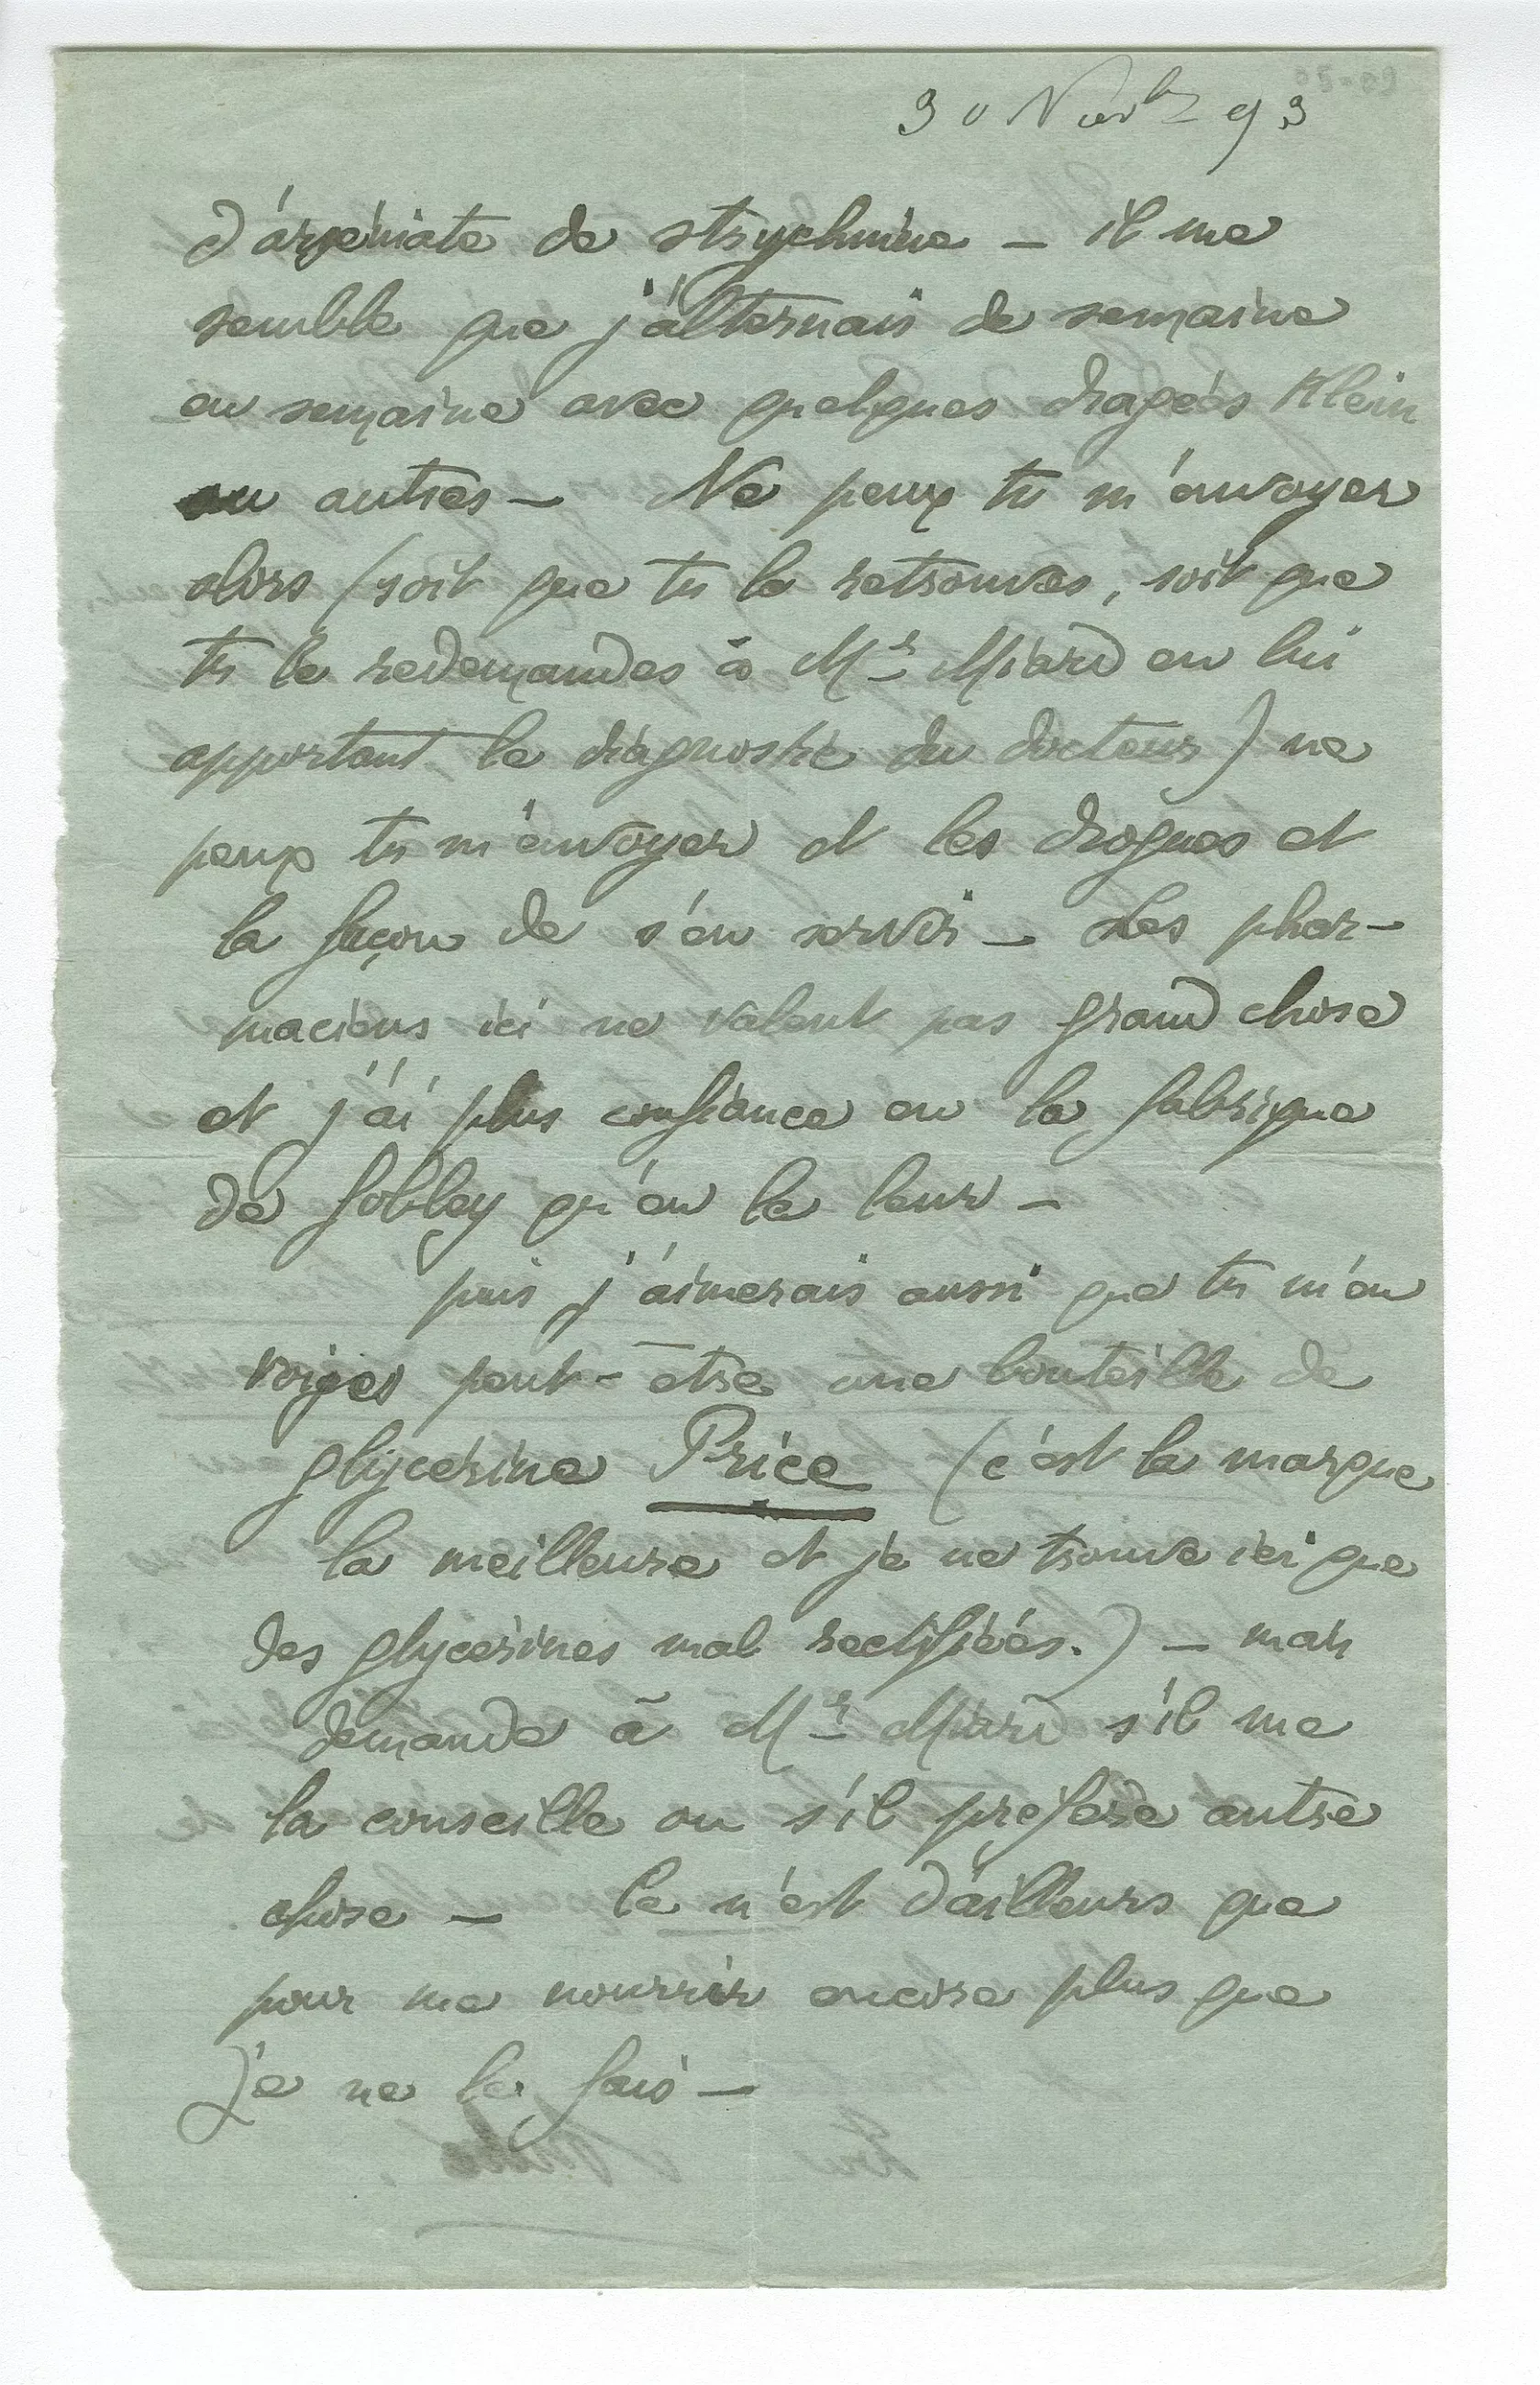 30 Novbre 93
d'arséniate de strychnine — il me
semble que j'alternais de semaine
en semaine avec quelques dragées Klein
ou autres — Ne peux tu m'envoyer
alors (soit que tu le retrouves, soit que
tu le redemandes à Mr Miard en lui
apportant le diagnostic du docteur) ne
peux tu m'envoyer et les drogues et
la façon de s'en servir — Les phar-
maciens ici ne valent pas grand chose
et j'ai plus confiance en la fabrique
de Gobley qu'en la leur —
puis j'aimerais aussi que tu m'en
voies peut-être une bouteille de
glycérine Price (c'est la marque
la meilleure et je ne trouve ici que
des glycérines mal rectifiées.) — mais
demande à Mr Miard s'il me
la conseille ou s'il préfère autre
chose — Ce n'est d'ailleurs que
pour me nourrir encore plus que
je ne le fais —